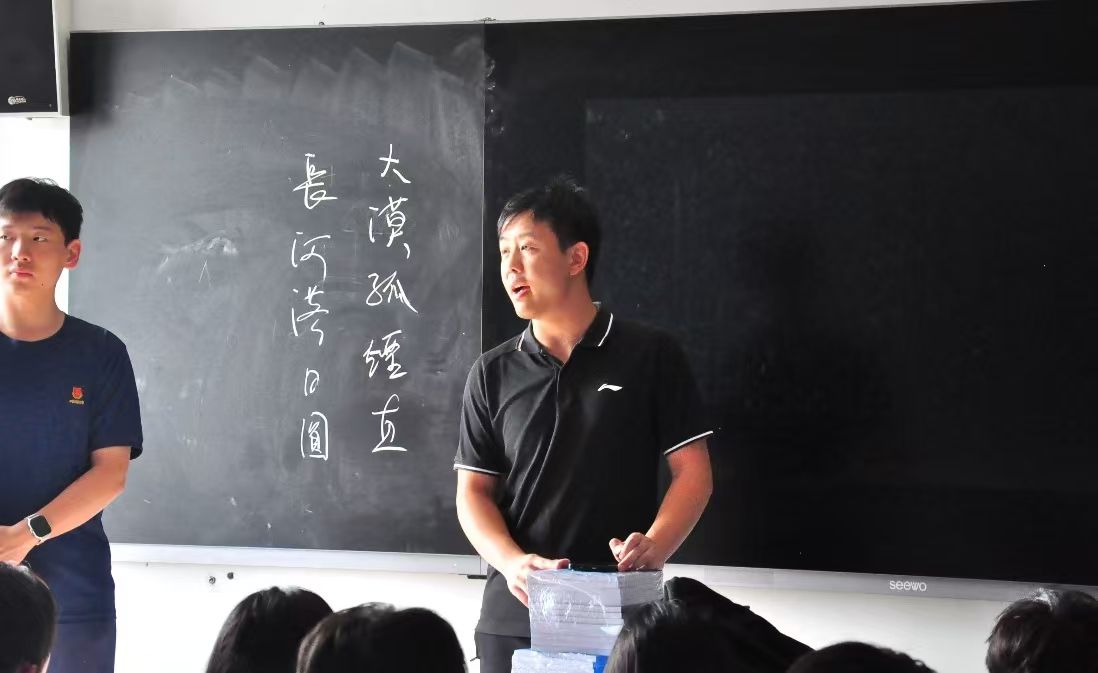 大漠孤煙直
長河落日圓
seewo